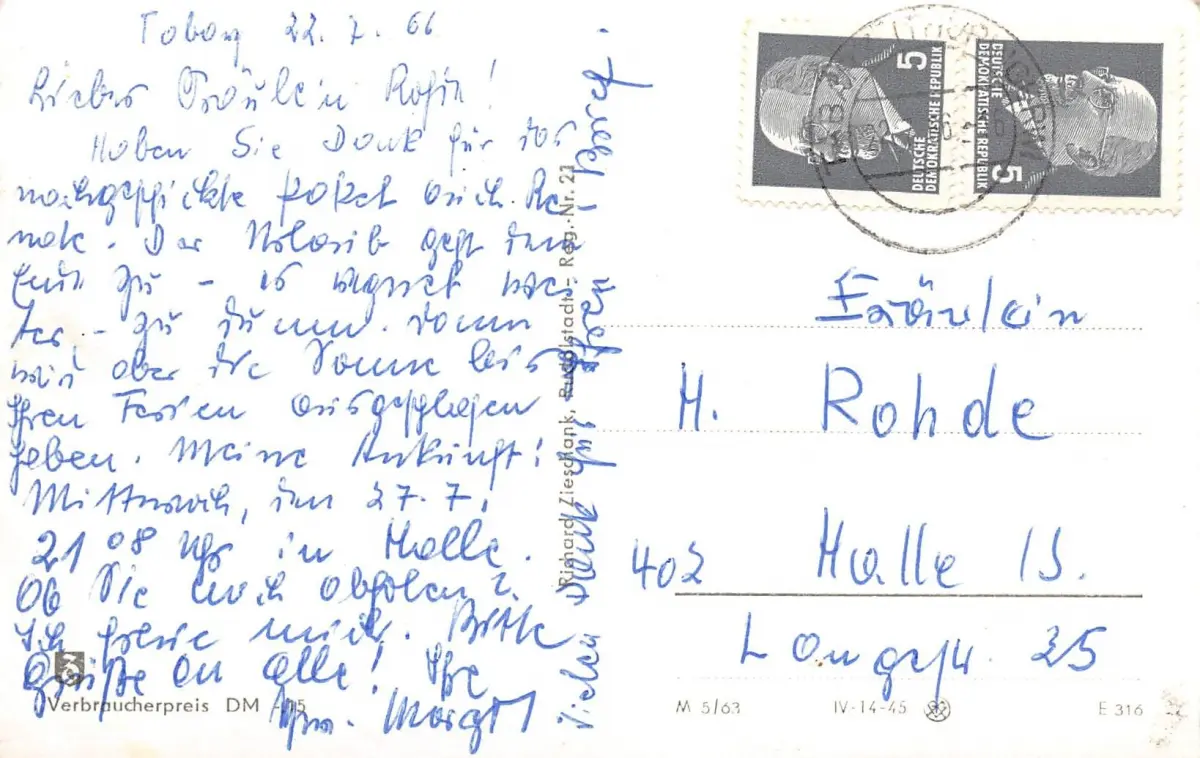 Tabarz 22. 7. 66
Liebes Fräulein Rohde!
Haben Sie Dank für das
nachgeschickte Paket auch Re-
nate. Der Urlaub geht dem
Ende zu – es regnet wei-
ter, – zu dumm. dann
wird aber die Sonne bei
Ihren Ferien ausgeschlafen
haben. Meine Ankunft:
Mittwoch, den 27. 7.
21 08 Uhr in Halle.
Ob Sie mich abholen?
Ich freue mich. Bitte
Grüße an alle! Ihre
Margot
Vielen Dank für Ihren Brief.
Verbraucherpreis DM -,15
Richard Zieschank, Rudolstadt - Reg.-Nr. 21
DEUTSCHE
DEMOKRATISCHE REPUBLIK
5
DEUTSCHE
DEMOKRATISCHE REPUBLIK
5
Fräulein
H. Rohde
402 Halle /S.
Langestr. 35
M 5/63 IV-14-45 E 316